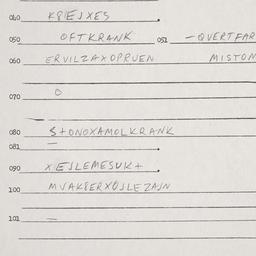 040 K8EJXES
050 OFTKRANK 051 — QVERTFAR
060 ERVILZAXOPRUEN MISTOM
070 O
080 S+ONOXAMOLKRANK
081 —
090 XEJLEMESUK+
100 MVAK8ERXOJLEZAJN
101 —